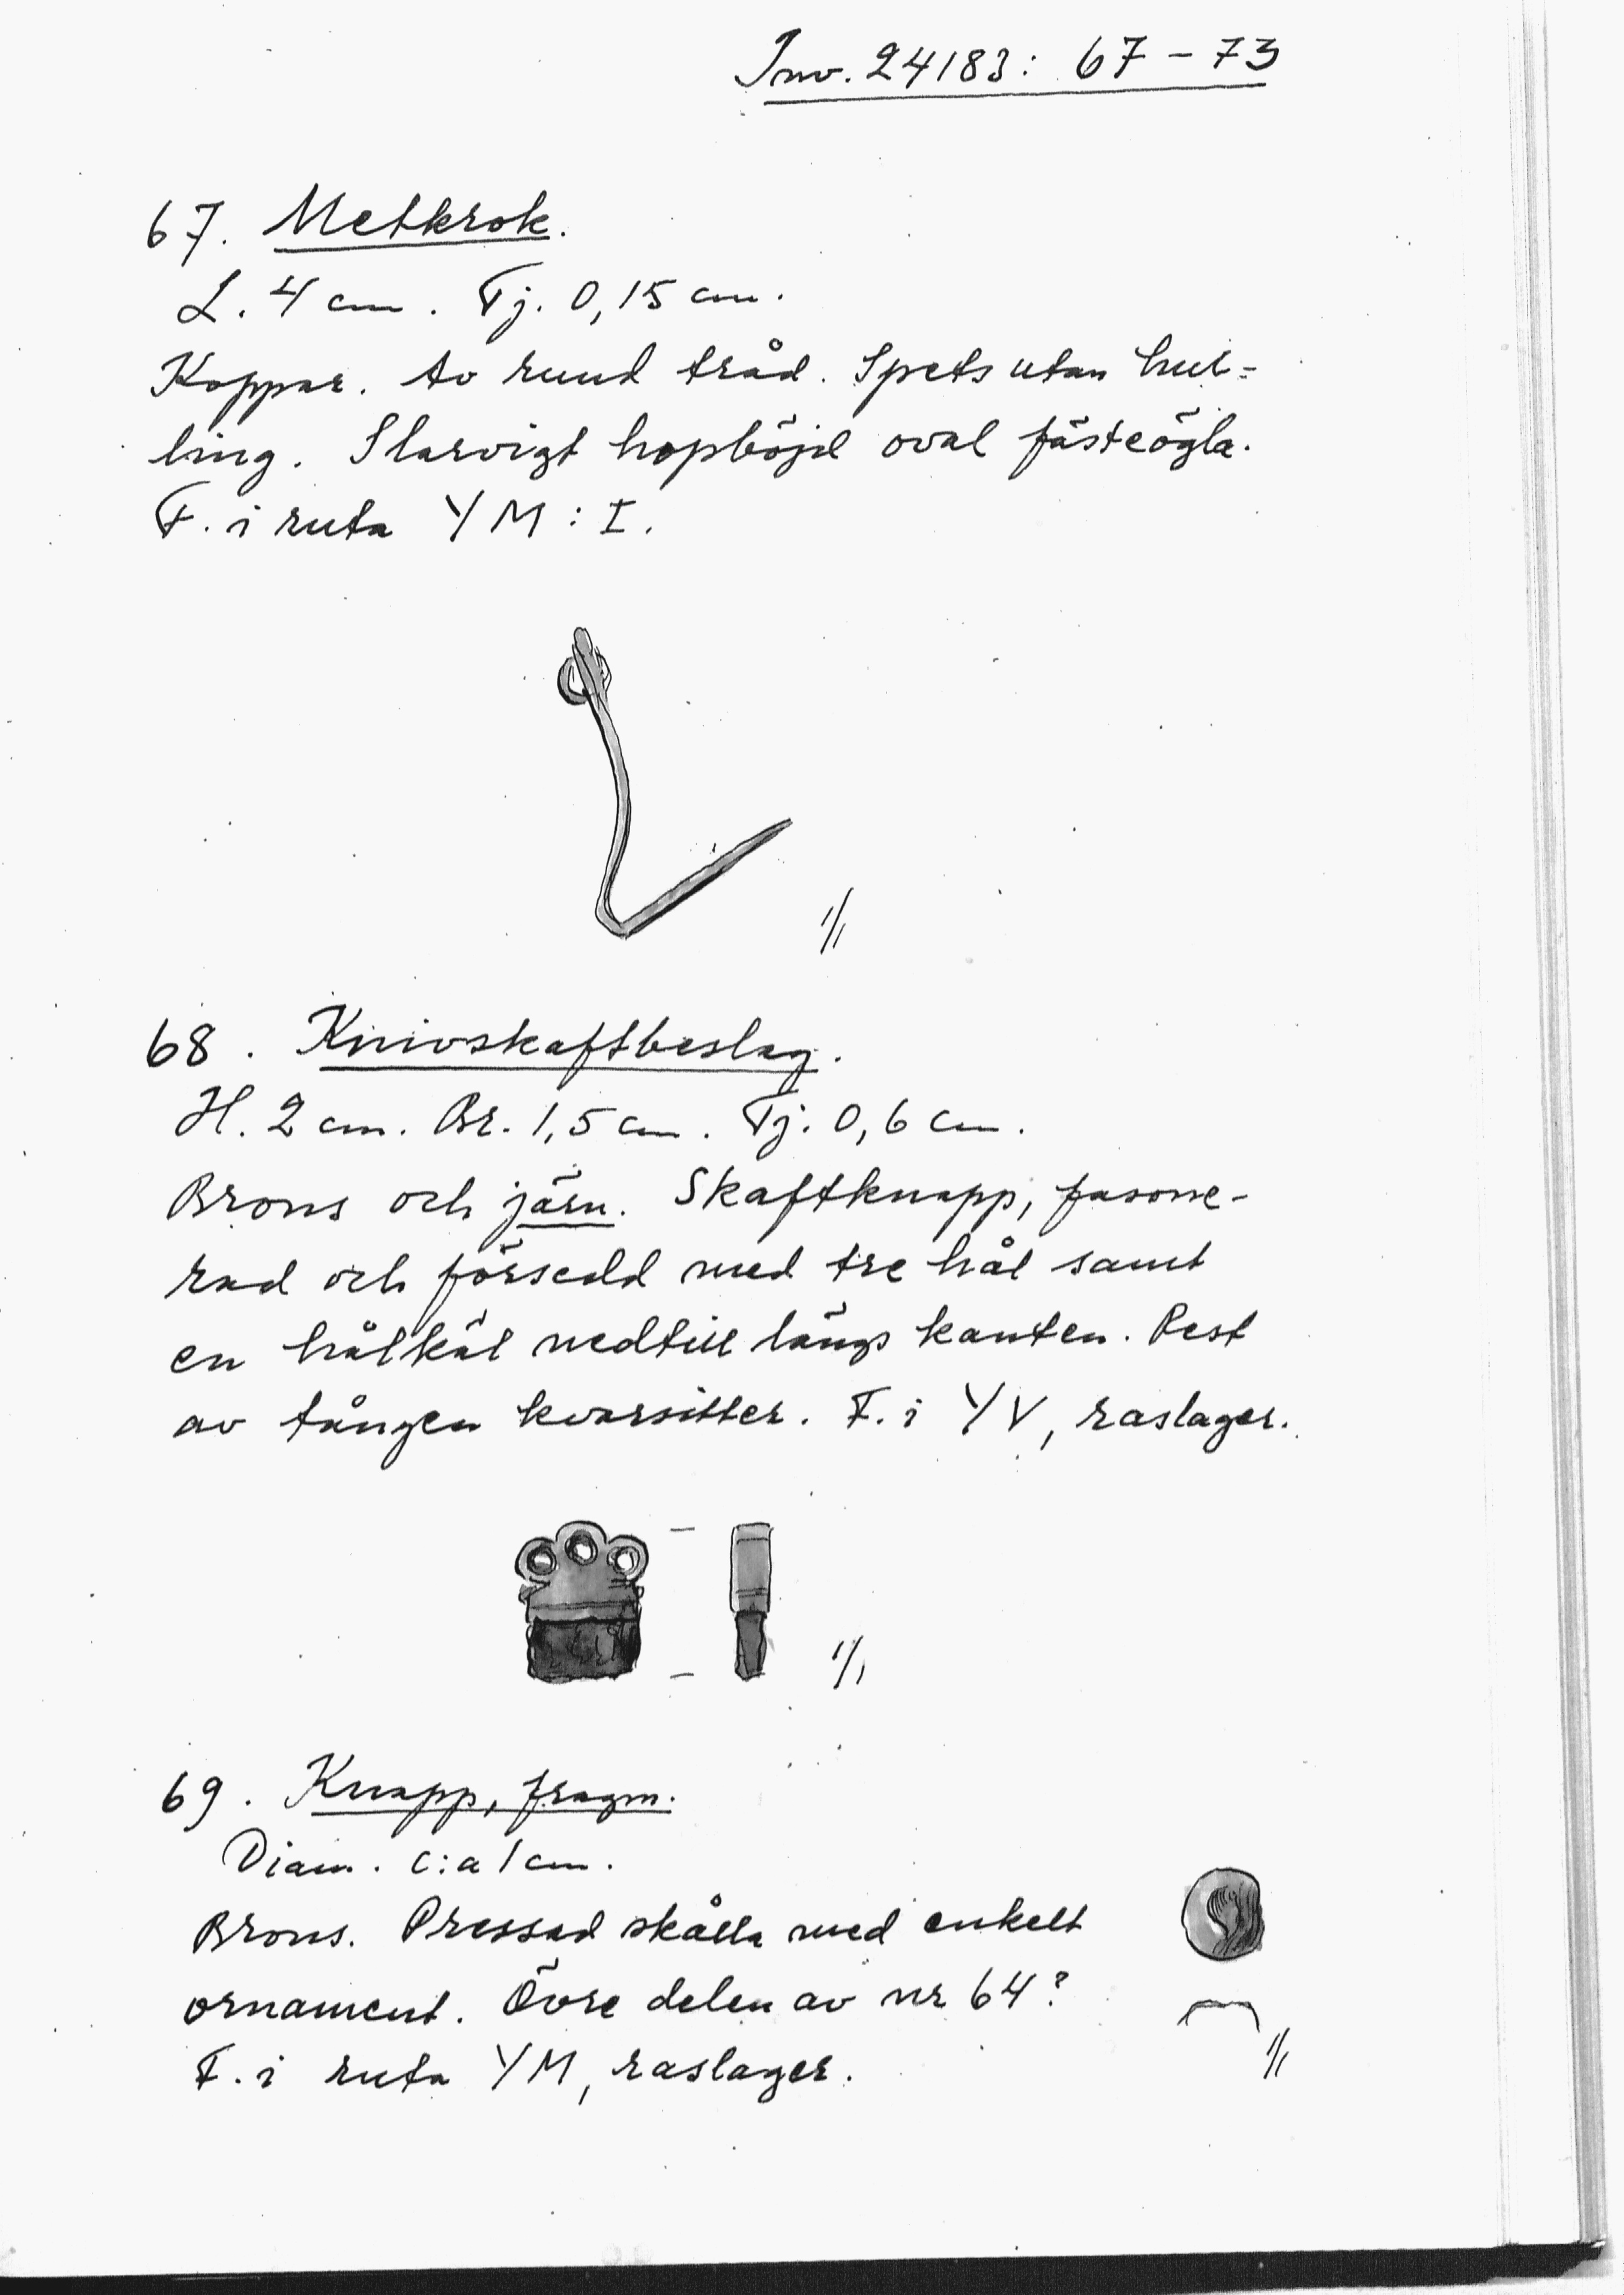 Inv. 24183: 67 – 73
67. Metkrok.
L. 4 cm. Tj. 0,15 cm.
Koppar. Av rund tråd. Spets utan hul=
ling. Slarvigt hopböjd oval fästeögla.
F. i ruta YM : I.
1/1
68. Knivskaftbeslag.
H. 2 cm. Br. 1,5 cm. Tj. 0,6 cm.
Brons och järn. Skaftknapp, fasone-
rad och försedd med tre hål samt
en hålkäl nedtill längs kanten. Rest
av tången kvarsitter. F. i YV, raslager.
1/1
69. Knapp, fragm.
Diam. c:a 1 cm.
Brons. Pressad skålla med enkelt
ornament. Övre delen av nr 64?
F. i ruta YM, raslager.
1/1